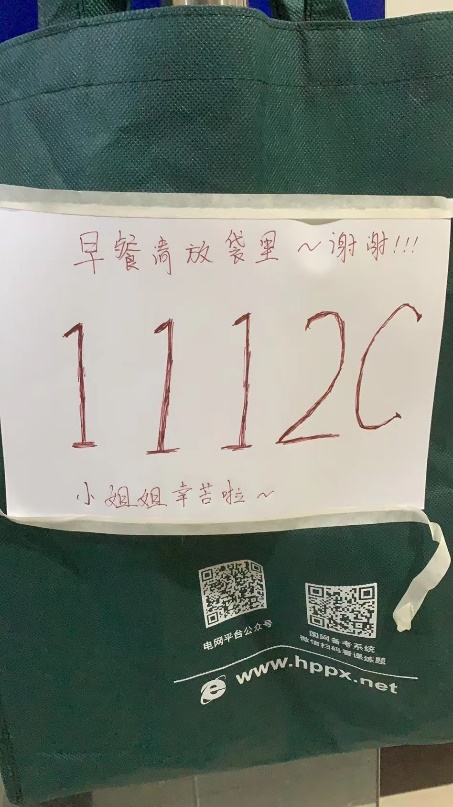 早餐请放袋里～谢谢!!!
1112C
小姐姐幸苦啦～
电网平台公众号
国网备考系统
微信扫码看课练题
www.hppx.net